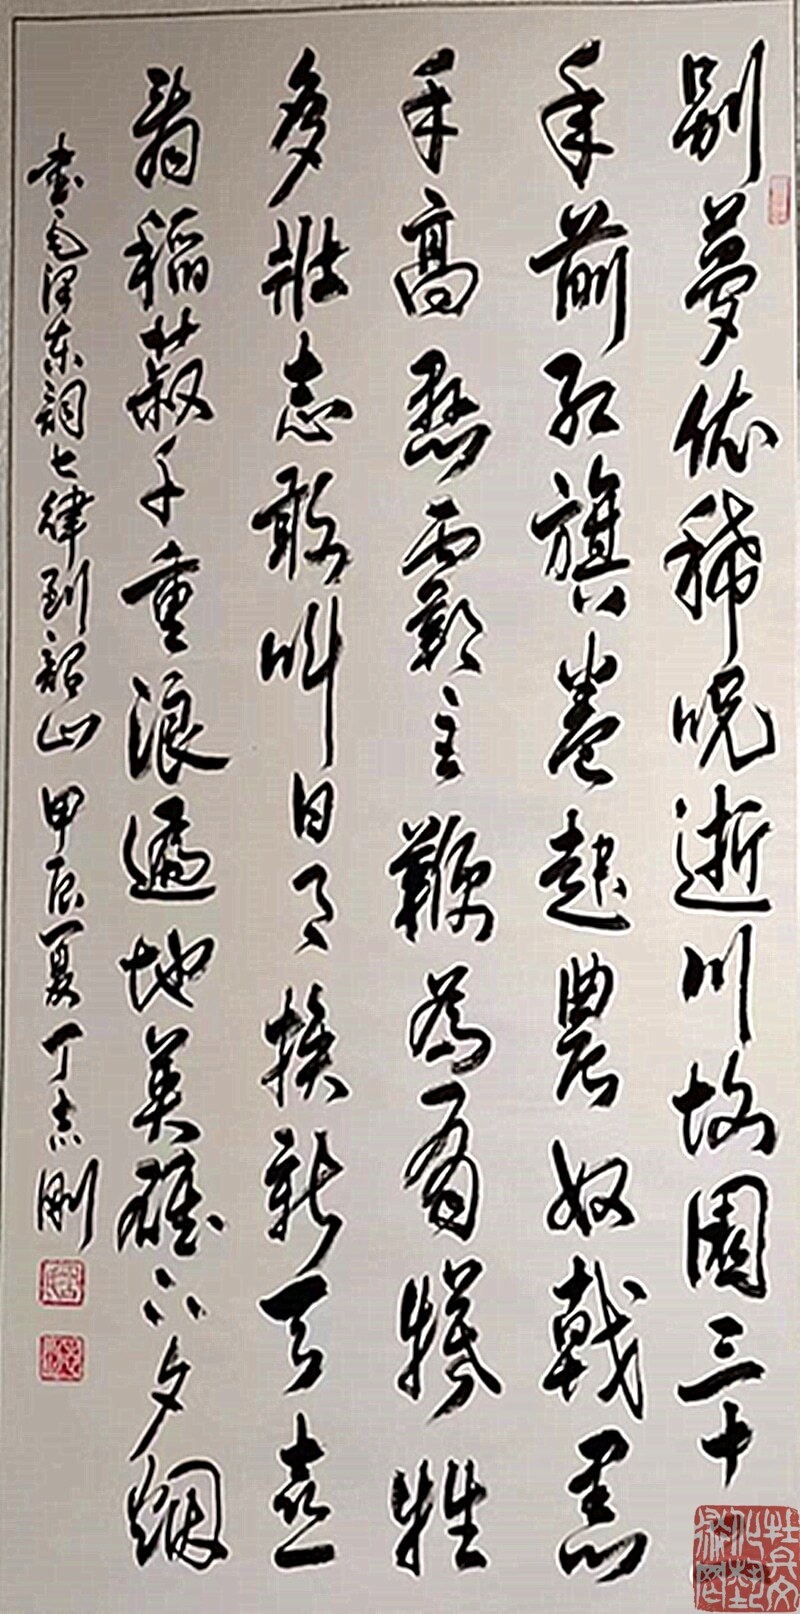 别夢依稀呪逝川故園三十
年前紅旗卷起農奴戟黑
手高懸霸主鞭為有犧牲
多壯志敢叫日月換新天喜
看稻菽千重浪遍地英雄下夕烟
書毛泽东詞七律到韶山 甲辰夏 丁志刚